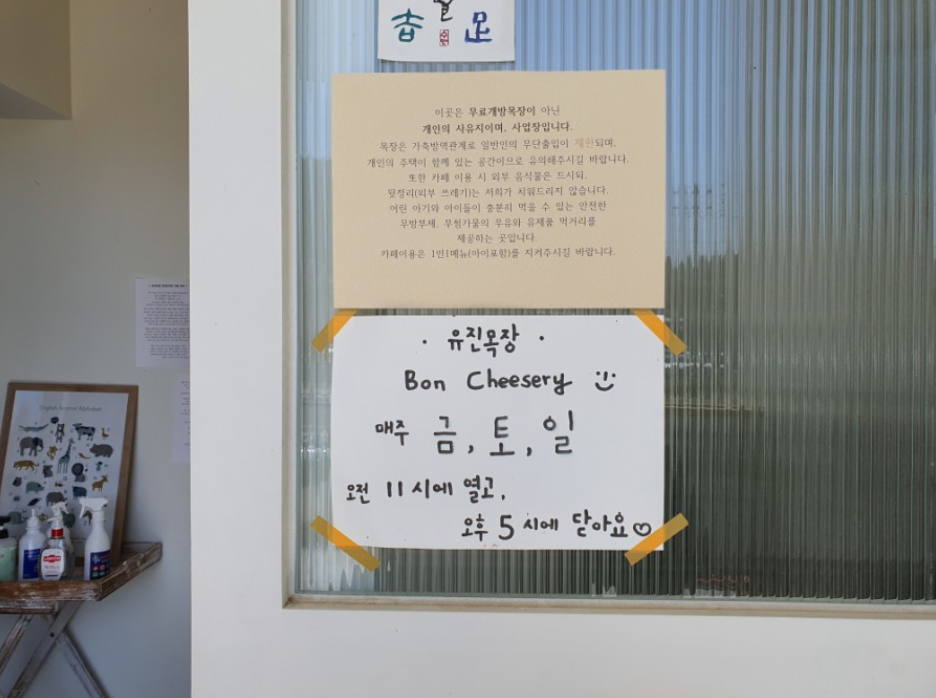 이곳은 무료개방목장이 아닌
개인의 사유지이며, 사업장입니다.
목장은 가축방역관계로 일반인의 무단출입이 제한되며,
개인의 주택이 함께 있는 공간이므로 유의해주시길 바랍니다.
또한 카페 이용 시 외부 음식물은 드시되,
뒷정리(외부 쓰레기)는 저희가 치워드리지 않습니다.
어린 아기와 아이들이 충분히 먹을 수 있는 안전한
무방부제, 무첨가물의 우유와 유제품 먹거리를
제공하는 곳입니다.
카페이용은 1인1메뉴(아이포함)를 지켜주시길 바랍니다.
· 유진목장 ·
Bon Cheesery
매주 금, 토, 일
오전 11시에 열고,
오후 5시에 닫아요♡
English Animal Alphabet